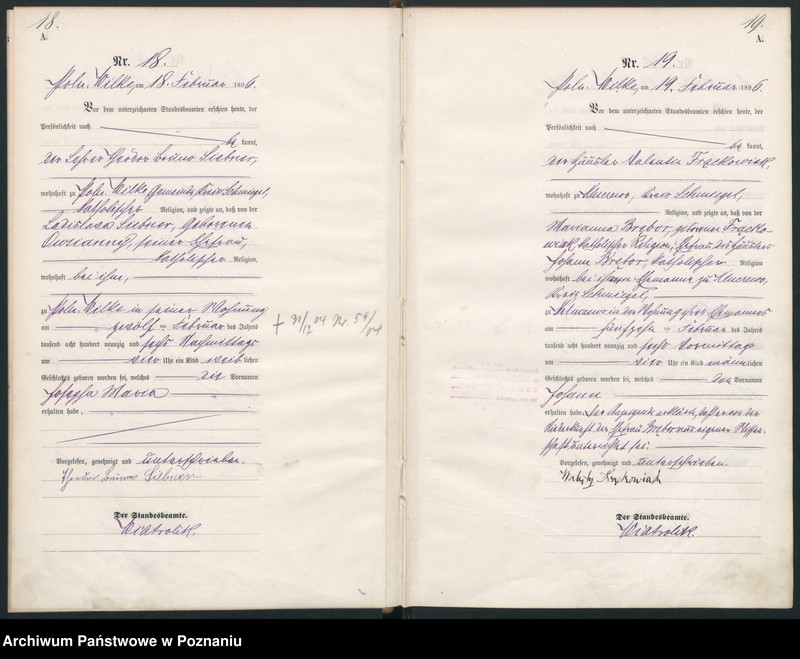 18.
A.
Nr. 18.
Poln. Wilke, am 18. Februar 1896.
Vor dem unterzeichneten Standesbeamten erschien heute, der
Persönlichkeit nach
be kannt,
der Lehrer Theodor Bruno Siebner,
wohnhaft zu Poln. Wilke Gemeinde, Kreis Schmiegel,
katholischer Religion, und zeigte an, daß von der
Ladislava Siebner, geborenen
seiner Ehefrau,
katholischer Religion,
wohnhaft bei ihm,
zu Poln. Wilke in seiner Wohnung
am zwölf ten Februar des Jahres
tausend acht hundert neunzig und sechs Nachmittags
um vier Uhr ein Kind weib lichen
Geschlechts geboren worden sei, welches den Vornamen
Josepha Maria
erhalten habe.
Vorgelesen, genehmigt und unterschrieben.
Theodor Bruno Siebner
Der Standesbeamte.
Wiatrolik.
+ 31/12 04 Nr. 54/04
19.
A.
Nr. 19.
Poln. Wilke, am 19. Februar 1896.
Vor dem unterzeichneten Standesbeamten erschien heute, der
Persönlichkeit nach
be kannt,
der Häusler Valentin Frąckowiak,
wohnhaft zu Kreis Schmiegel,
Religion, und zeigte an, daß von der
Marianna Brębor, geborenen Frącko-
wiak, katholischer Religion, Ehefrau des Häuslers
Johann Brębor, katholischer Religion
wohnhaft bei ihrem Ehemanne zu
Kreis Schmiegel,
zu in der Wohnung ihres Ehemannes
am fünfzehn ten Februar des Jahres
tausend acht hundert neunzig und sechs Vormittags
um vier Uhr ein Kind männ lichen
Geschlechts geboren worden sei, welches den Vornamen
Johann
erhalten habe. Der Anzeigende erklärte, daß er von der
Niederkunft der Ehefrau Brębor aus eigener Wissen-
schaft unterrichtet sei.
Vorgelesen, genehmigt und unterschrieben.
Der Standesbeamte.
Wiatrolik.
Archiwum Państwowe w Poznaniu